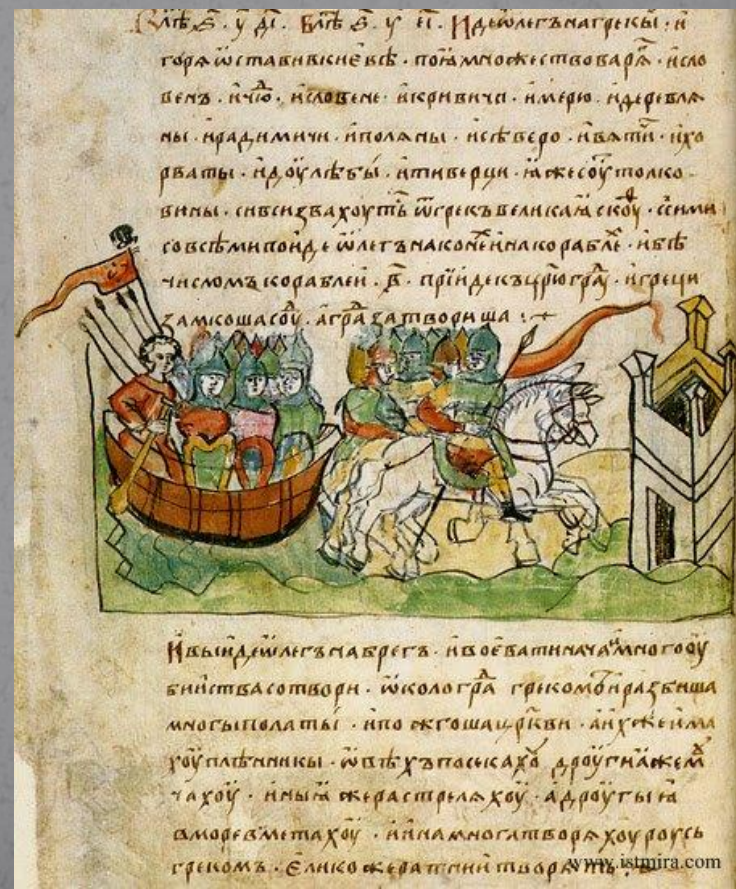 В лѣⷮ ҂ѕ҃ у҃ д҃і. В лѣⷮ ҂ѕ҃ у҃ е҃і. Иде ѡлегъ на грекы · и
горѧ ѡстави в киевѣ · поѧ множество варѧⷢ · исло
венъ · ичюⷣ · исловене · икривичи · имерю · идеревлѧ
ны · ирадимичи · иполѧны · исѣверо · ивѧтичи · ихо
рваты · идоулѣбы · итиверци · ꙗже соуⷮ толко
вины · си вси звахоутьⷭ ѿ грекъ великаꙗ скоуⷴ · с сими
со всѣми поиде ѡлегъ на конеⷯ и на кораблеⷯ · и бѣ
числомъ кораблеи · в҃ · прїиде къ цр҃юграⷣ · и греци
замкоша соуⷣ · а граⷣ затвориша :·
И выиде ѡлегъ на брегъ · и воевати нача и много оу
биист​ва сотвори · ѡколо граⷣ грекомъ и разбиша
многы полаты · и пожгоша цр҃кви · а ихже има
хоу плѣнникы · ѡвѣхъ посѣкахоу дроугиꙗже м
чахоу · иныꙗ же растрелѧхоу · а дроугыꙗ
в море вметахоу · и ина многа творѧхоу роусь
грекомъ · елико же ратнии творѧть
www.istmira.com